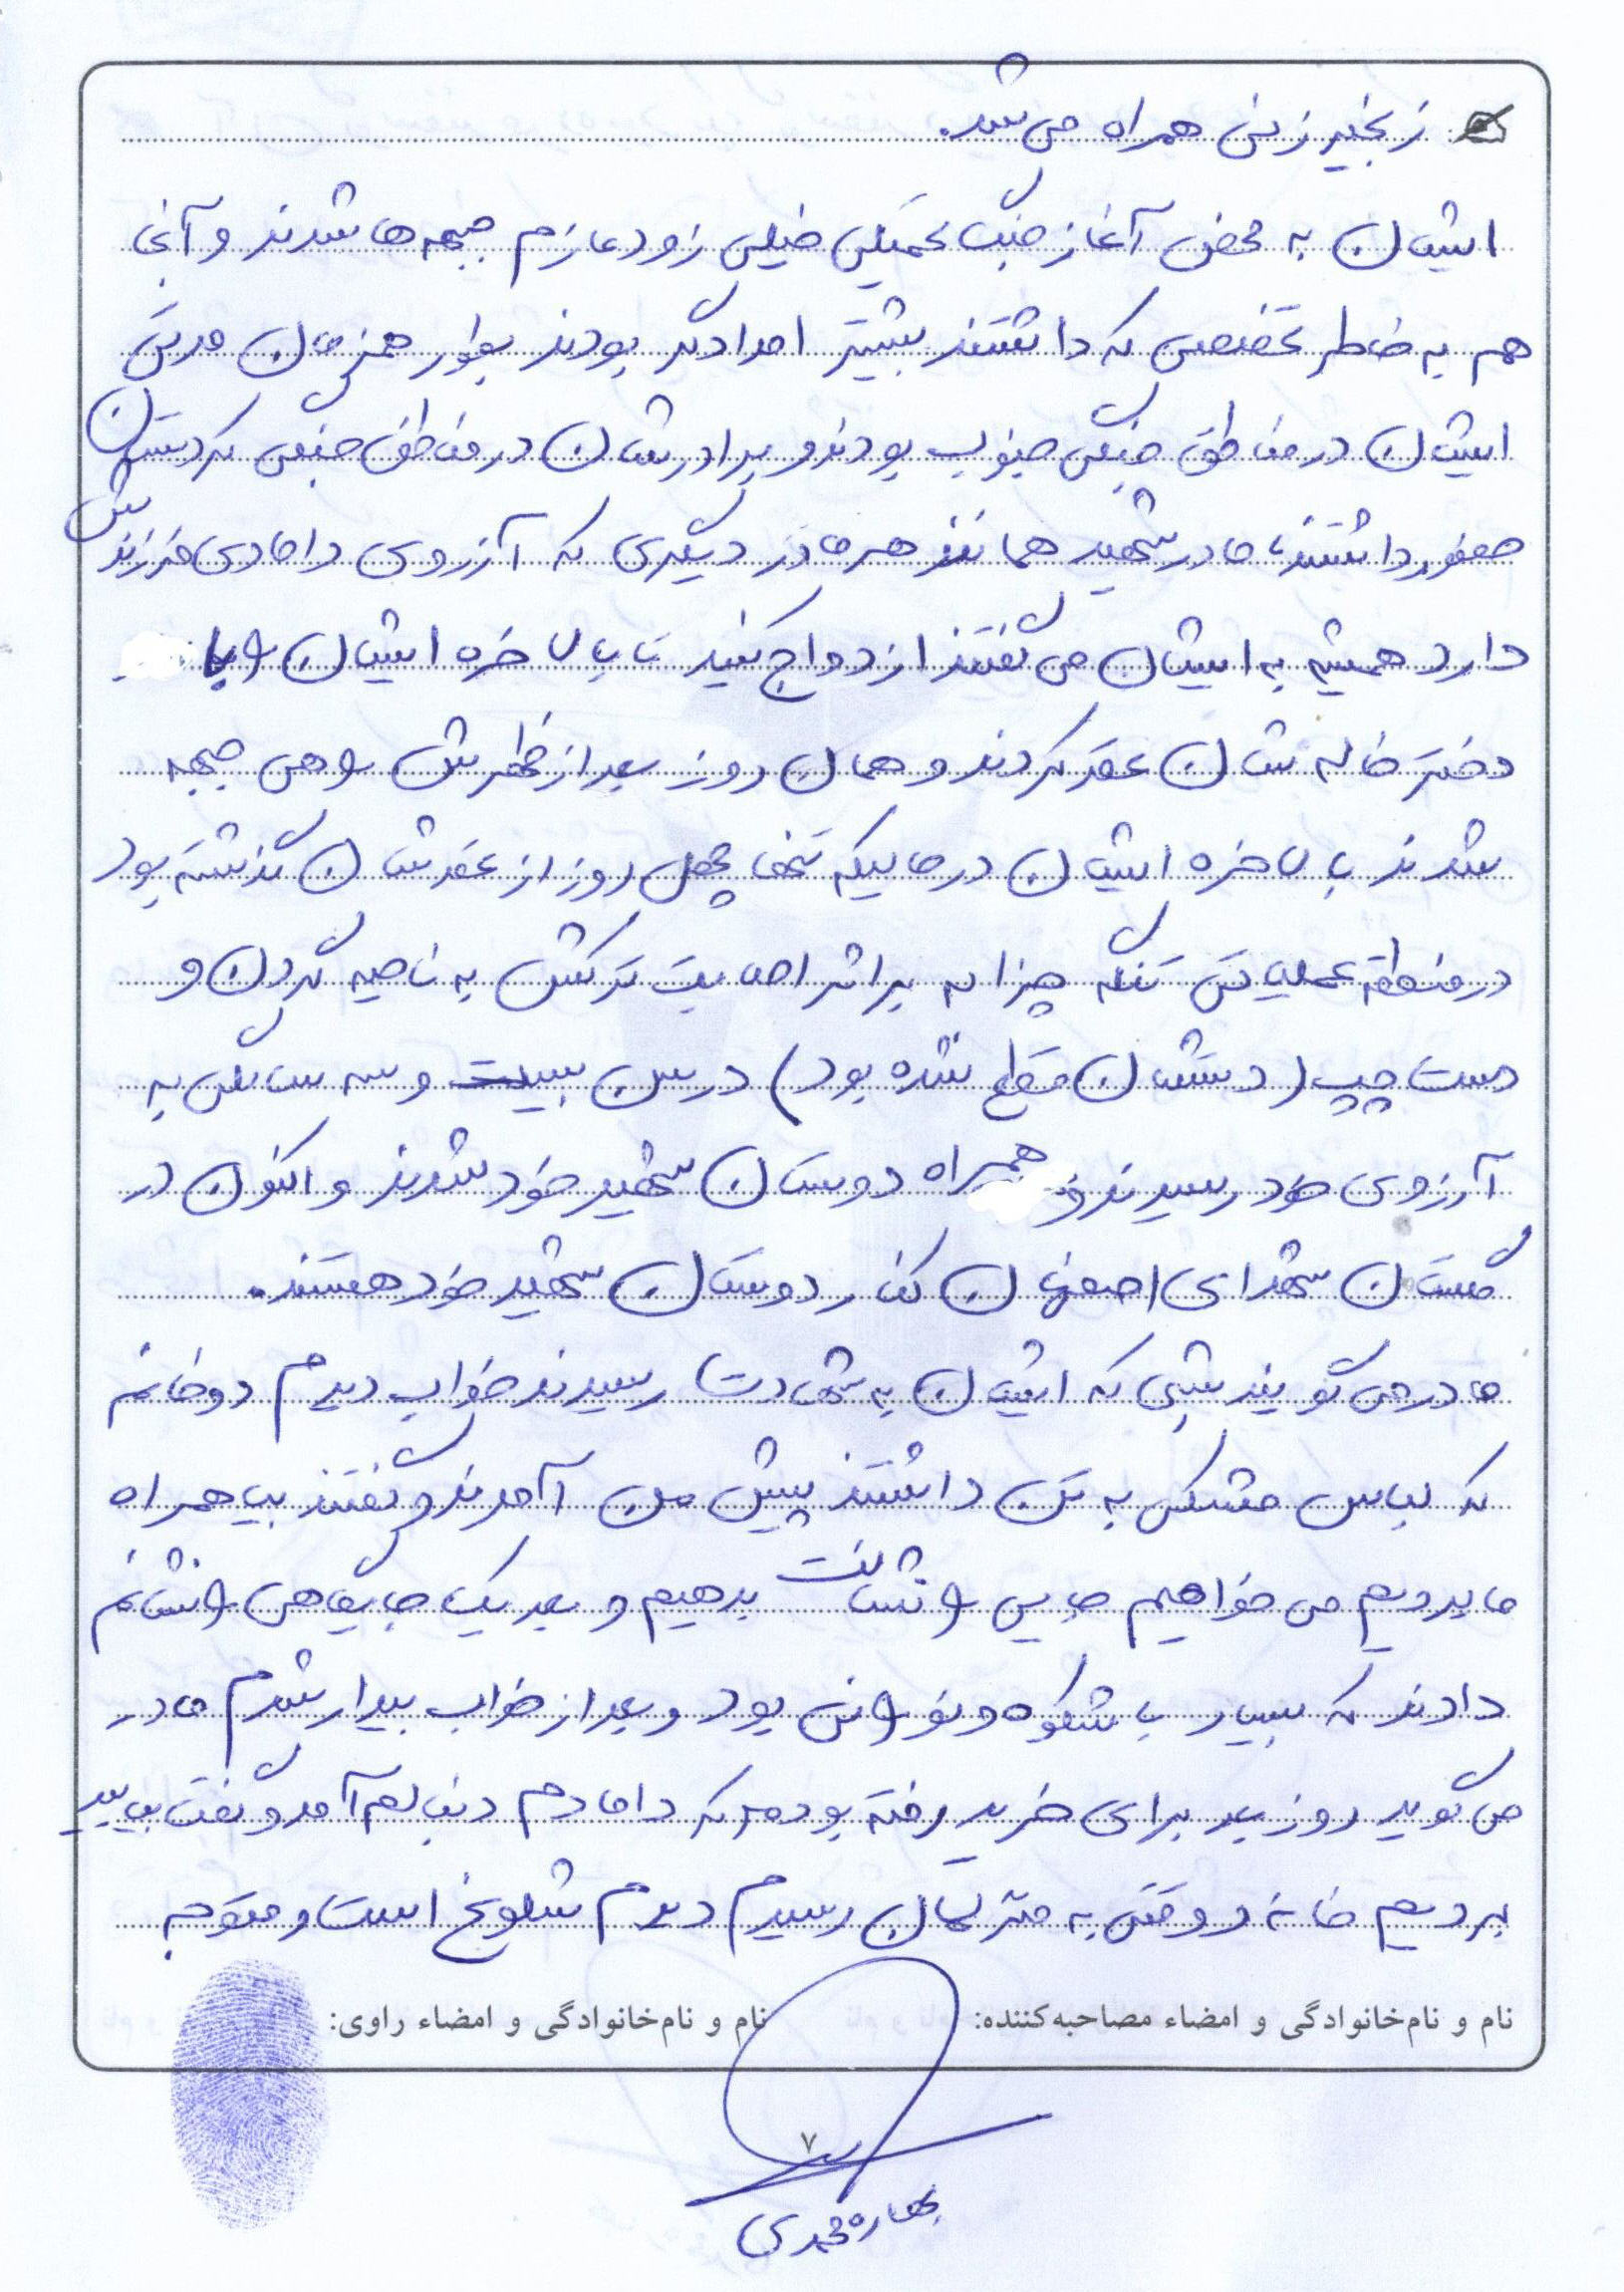 زنجیر زنی همراه می شد.
ایشان به محض آغاز جنگ تحمیلی خیلی زود عازم جبهه ها شدند و آنجا
هم به خاطر تخصصی که داشتند بیشتر امدادگر بودند بطور همزمان مدتی
ایشان در مناطق جنگی جنوب بودند و برادرشان در مناطق جنگی کردستان
حضور داشتند، مادر شهید همانند هر مادر دیگری که آرزوی دامادی فرزندش
دارد همیشه به ایشان می گفتند ازدواج کنید تا بالاخره ایشان را با
دختر خاله شان عقد کردند و همان روز بعد از ظهرش راهی جبهه
شدند بالاخره ایشان در حالیکه تنها چهل روز از عقدشان گذشته بود
در منطقه عملیاتی تنگه چزابه بر اثر اصابت ترکش به ناحیه گردن و
دست چپ (دستشان قطع شده بود) در سن بیست و سه سالگی به
آرزوی خود رسیدند و همراه دوستان شهید خود شدند و اکنون در
گلستان شهدای اصفهان کنار دوستان شهید خود هستند.
مادر می گویند شبی که ایشان به شهادت رسیدند خواب دیدم دو خانم
که لباس مشکی به تن داشتند پیش من آمدند و گفتند بیا همراه
ما برویم می خواهیم جایی را نشانت بدهیم و بعد یک جایگاهی را نشانم
دادند که بسیار با شکوه و نورانی بود و بعد از خواب بیدار شدم مادر
می گوید روز بعد برای خرید رفته بودم که دامادم دنبالم آمد و گفت بیایید
برویم خانه و وقتی به منزلمان رسیدم دیدم شلوغ است و متوجه
نام و نام‌خانوادگی و امضاء مصاحبه‌کننده: نام و نام‌خانوادگی و امضاء راوی:
۷
بهاره محمدی